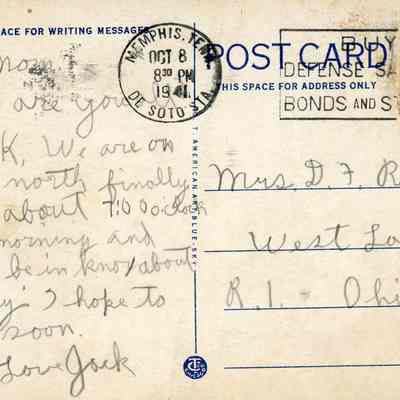 ACE FOR WRITING MESSAGES
POST CARD
THIS SPACE FOR ADDRESS ONLY
MEMPHIS, TENN.
OCT 8
8 30 PM
1941
DE SOTO STA.
BUY
DEFENSE SA
BONDS AND ST
Mom,
are you
K, We are on
north finally
about 7:0 o'clock
morning and
be in knox about
I hope to
soon.
Love Jack
T. AMERICAN ART BLUE-SKY
Mrs. D. F. R
West La
R. 1. Ohi